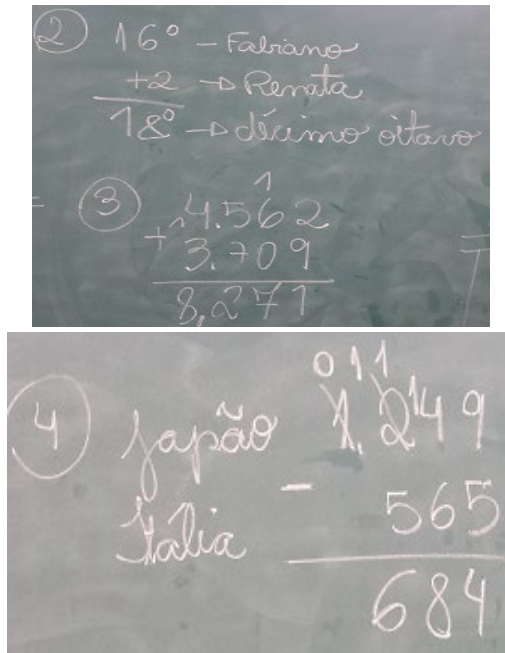 2 16º - Fabiano
+2 → Renata
18º → décimo oitavo
3 1
1 4.562
+ 3.709
8.271
0 1 1
4 Japão 1.2149
- 565
Itália
684